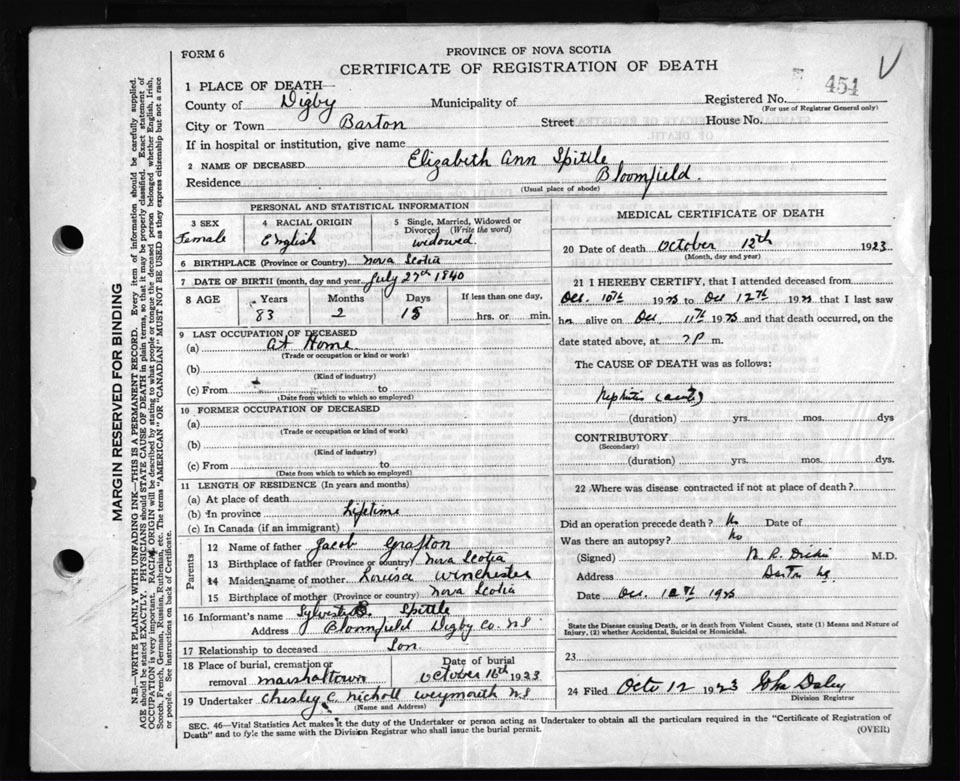 FORM 6
PROVINCE OF NOVA SCOTIA
CERTIFICATE OF REGISTRATION OF DEATH
454
1 PLACE OF DEATH—
County of Digby Municipality of Registered No.
(For use of Registrar General only)
City or Town Barton Street House No.
If in hospital or institution, give name
2 NAME OF DECEASED Elizabeth Ann Spittle
Residence Bloomfield.
(Usual place of abode)
PERSONAL AND STATISTICAL INFORMATION
3 SEX 4 RACIAL ORIGIN 5 Single, Married, Widowed or Divorced (Write the word)
Female English widowed.
6 BIRTHPLACE (Province or Country) Nova Scotia
7 DATE OF BIRTH (month, day and year July 27th 1840
8 AGE Years Months Days If less than one day,
83 2 15 hrs. or min.
9 LAST OCCUPATION OF DECEASED
(a) At Home
(Trade or occupation or kind or work)
(b)
(Kind of industry)
(c) From to
(Date from which to which so employed)
10 FORMER OCCUPATION OF DECEASED
(a)
(Trade or occupation or kind of work)
(b)
(Kind of industry)
(c) From to
(Date from which to which so employed)
11 LENGTH OF RESIDENCE (In years and months)
(a) At place of death
(b) In province Lifetime
(c) In Canada (if an immigrant)
Parents
12 Name of father Jacob Grafton
13 Birthplace of father (Province or country) Nova Scotia
14 Maiden name of mother Louisa Winchester
15 Birthplace of mother (Province or country) Nova Scotia
16 Informant's name Sylvester Spittle
Address Bloomfield Digby Co. N.S
17 Relationship to deceased Son.
18 Place of burial, cremation or removal Marshaltown Date of burial October 16th 1923
19 Undertaker Chesley C. Nicholl Weymouth N S
(Name and Address)
MEDICAL CERTIFICATE OF DEATH
20 Date of death October 12th 1923
(Month, day and year)
21 I HEREBY CERTIFY, that I attended deceased from
Oct. 10th 1923 to Oct 12th 1923 that I last saw
her alive on Oct 11th 1923 and that death occurred, on the
date stated above, at P m.
The CAUSE OF DEATH was as follows:
Nephritis (acute)
(duration) yrs. mos. dys
CONTRIBUTORY
(Secondary)
(duration) yrs. mos. dys.
22 Where was disease contracted if not at place of death?
Did an operation precede death? No Date of
Was there an autopsy? No
(Signed) M.D.
Address Barton N.S.
Date Oct. 12th 1923
State the Disease causing Death, or in death from Violent Causes, state (1) Means and Nature of Injury, (2) whether Accidental, Suicidal or Homicidal.
23
24 Filed Octo 12 1923 John Daley
Division Registrar
SEC. 46—Vital Statistics Act makes it the duty of the Undertaker or person acting as Undertaker to obtain all the particulars required in the "Certificate of Registration of
Death" and to fyle the same with the Division Registrar who shall issue the burial permit. (OVER)
MARGIN RESERVED FOR BINDING
N.B.—WRITE PLAINLY WITH UNFADING INK—THIS IS A PERMANENT RECORD. Every item of information should be carefully supplied.
AGE should be stated EXACTLY. PHYSICIANS should STATE CAUSE OF DEATH in plain terms, so that it may be properly classified. Exact statement of
OCCUPATION is very important. RACIAL ORIGIN will be described by stating to what people or tongue the deceased person belonged whether English, Irish,
Scotch, French, German, Russian, Ruthenian, etc. The terms "AMERICAN" OR "CANADIAN" MUST NOT BE USED as they express citizenship but not a race
or people. See instructions on back of Certificate.